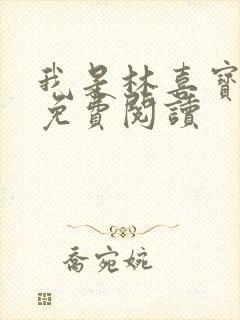 我是林喜寶
免費閱讀
喬宛婉